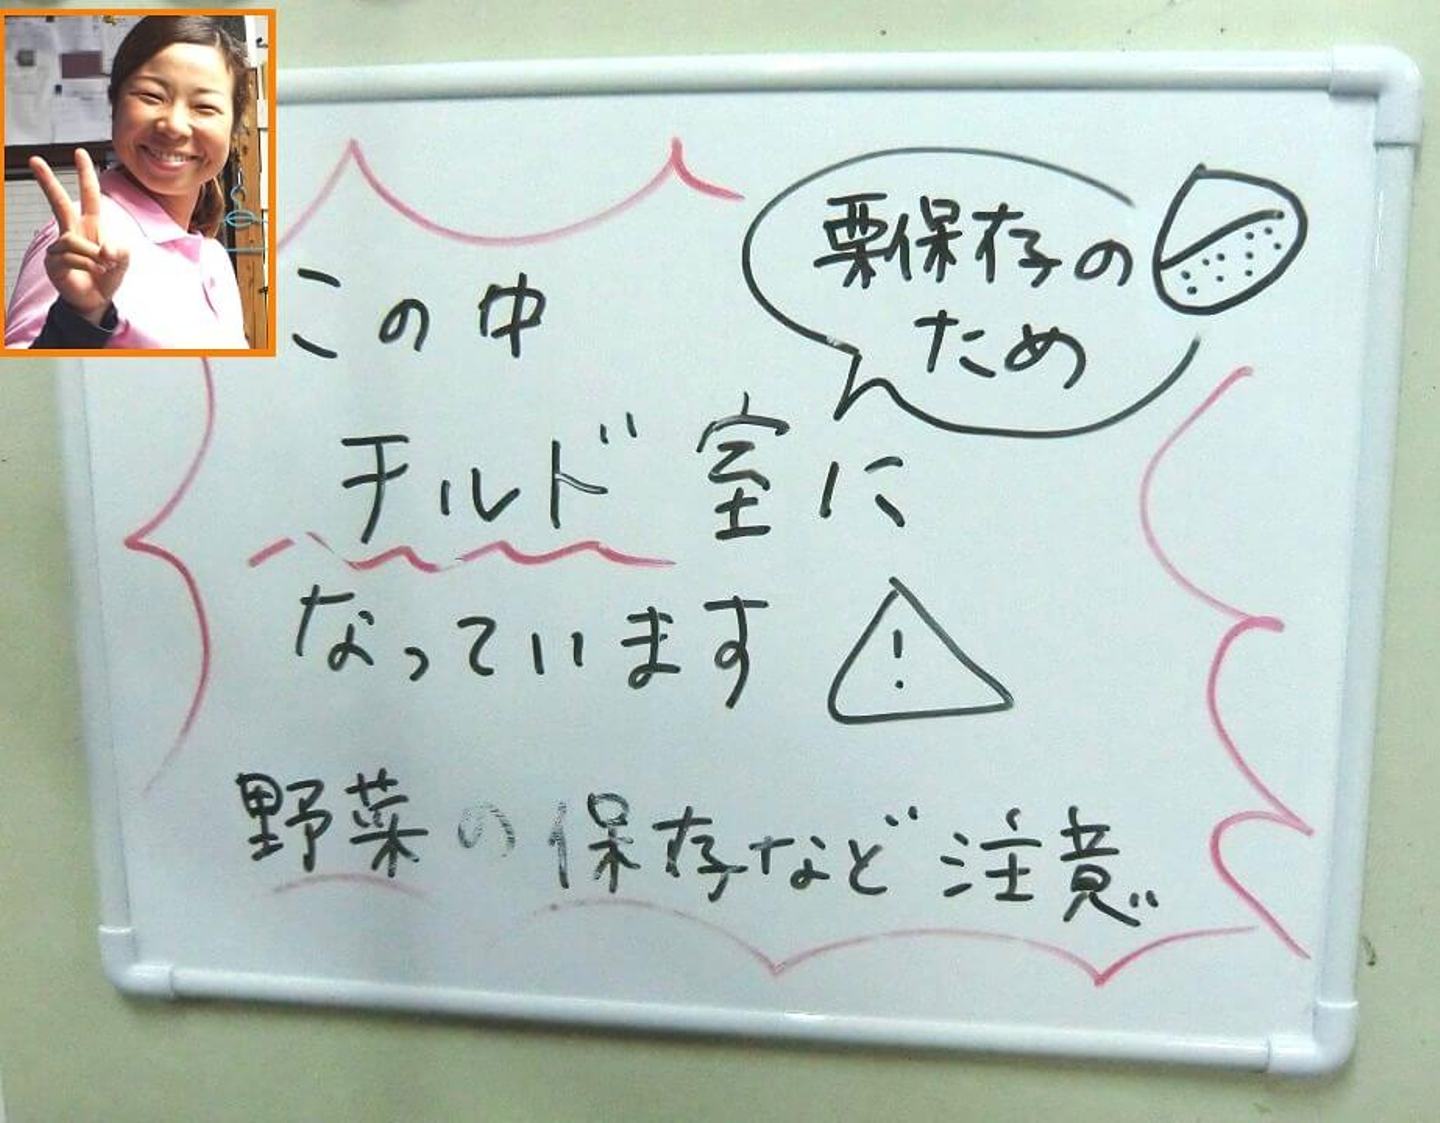 栗保存の
ため
この中
チルド室に
なっています
野菜の保存など注意